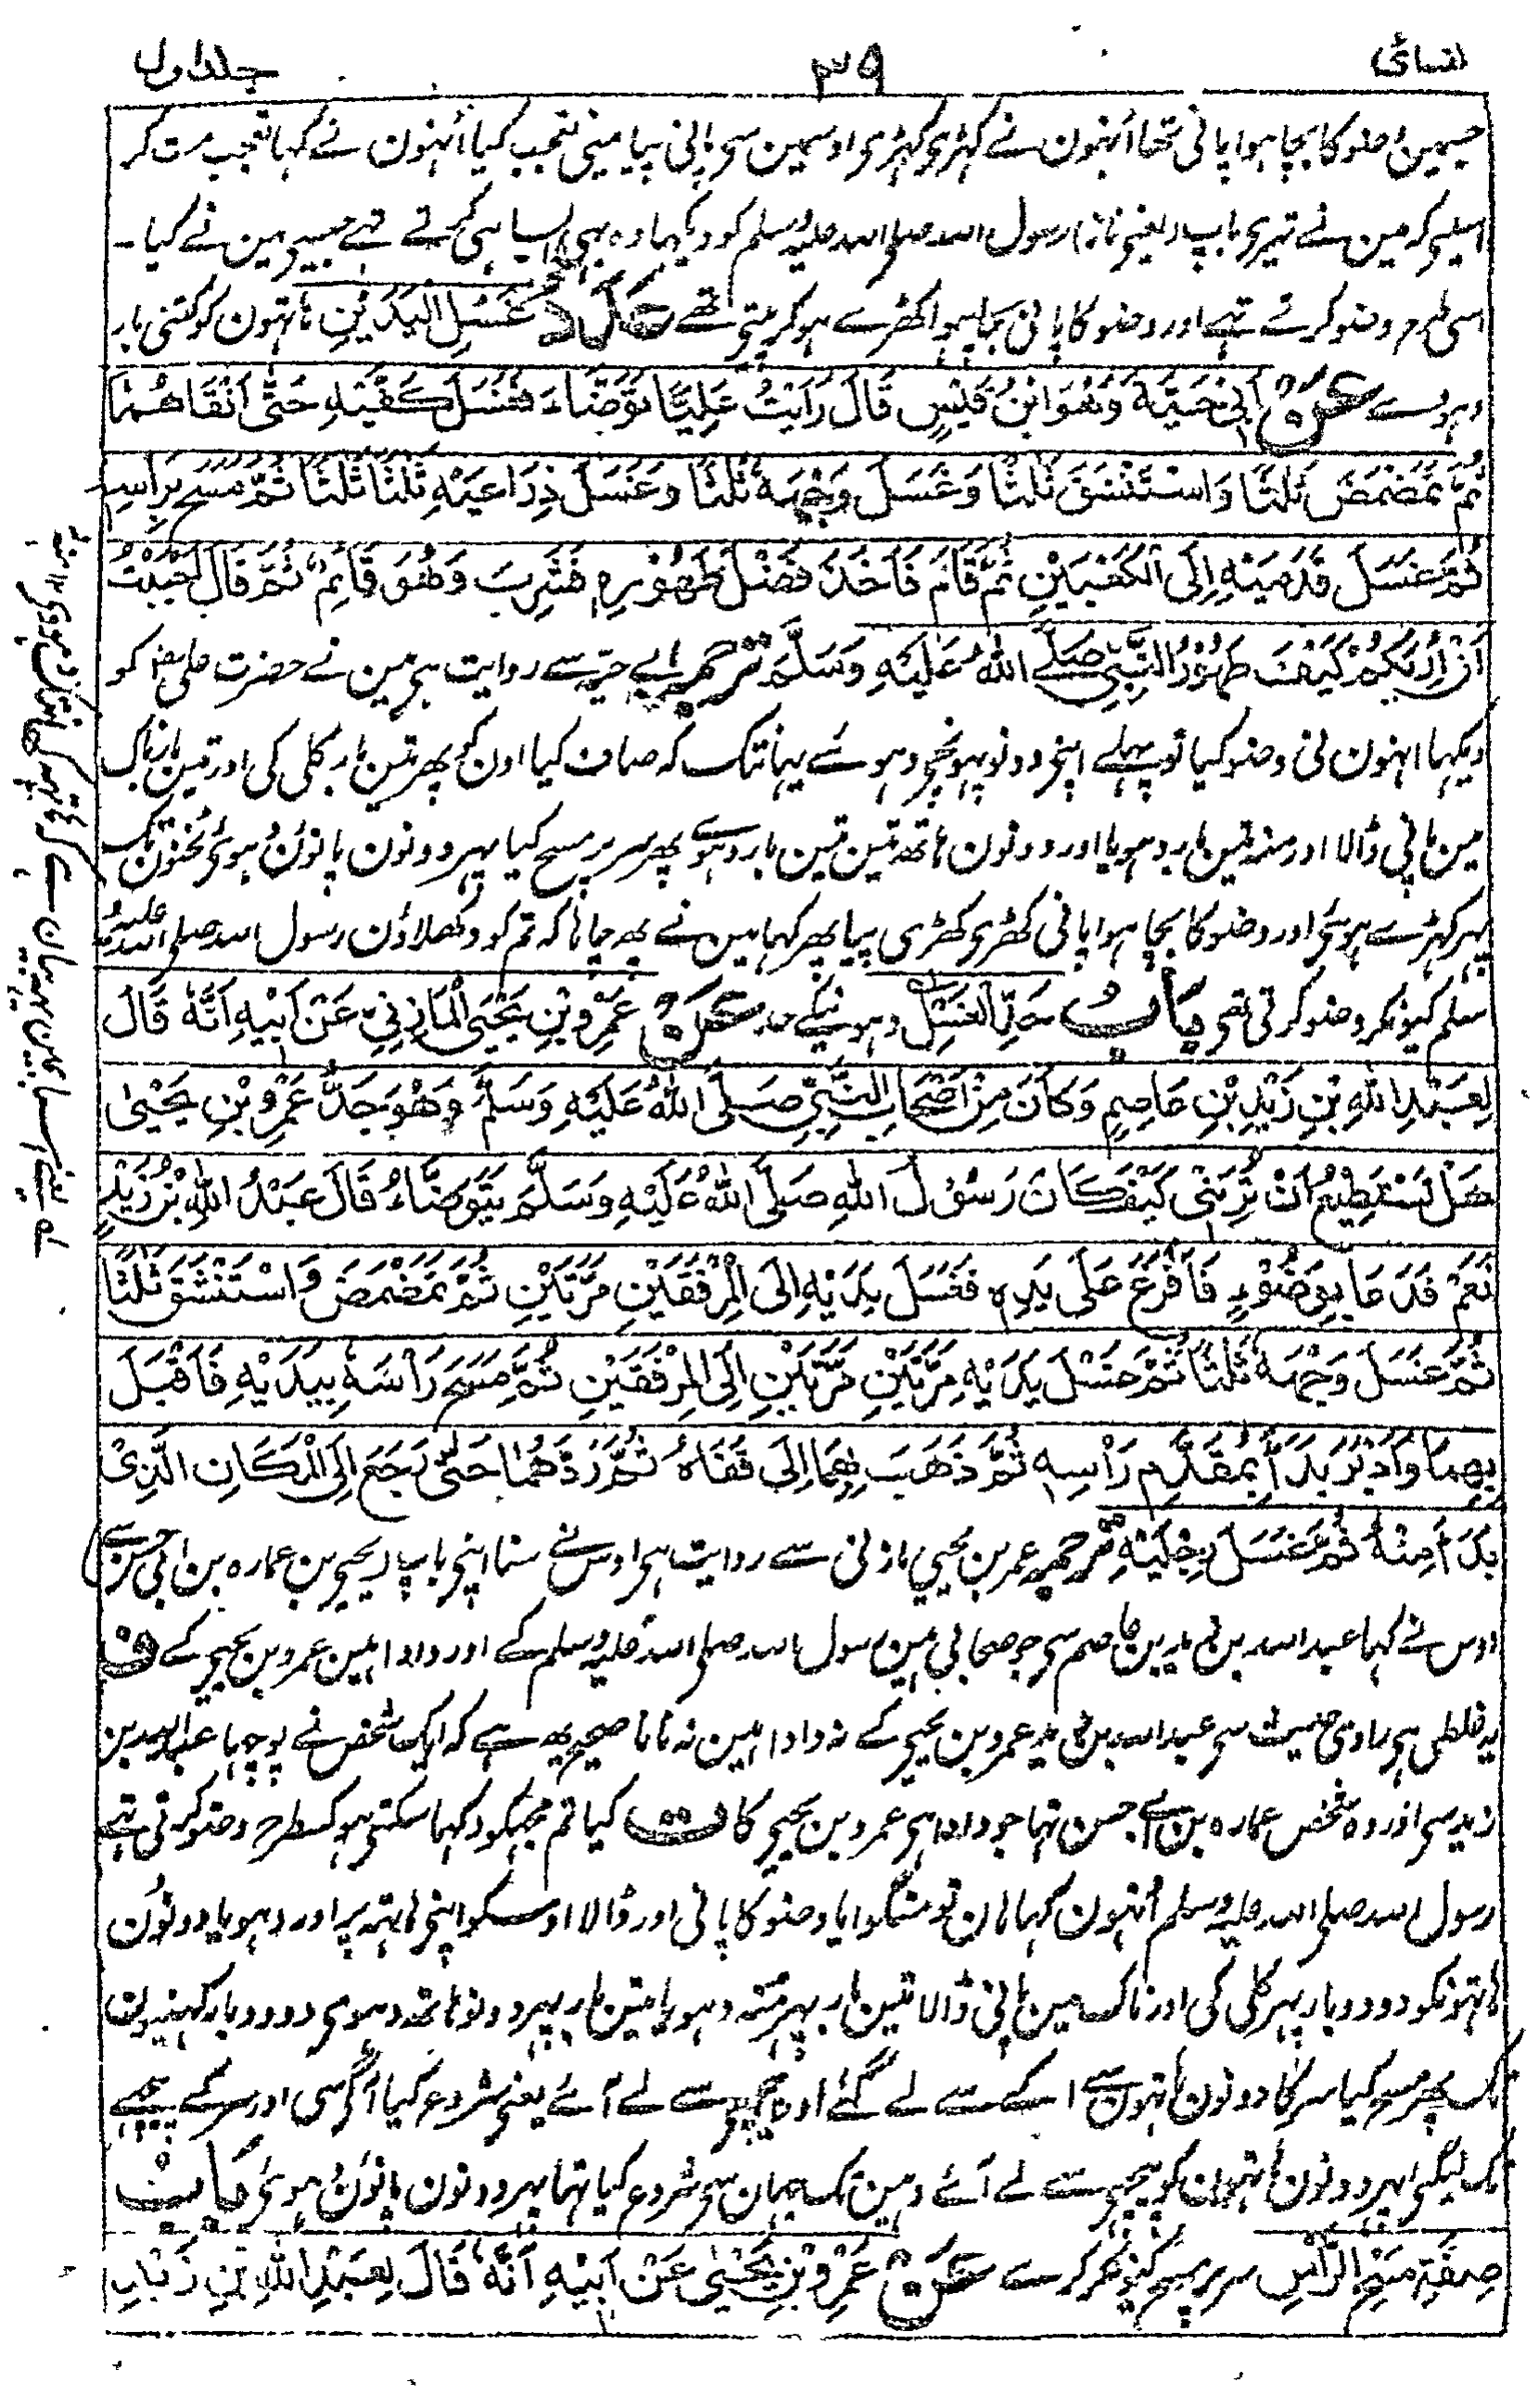 نسائی ۳۹ جلد اول
جسمین وضو کا بچا ہوا پانی تھا اُنہون نے کہڑی کہڑی اوسمین سی پانی پیا مینی تعجب کیا اُنہون نے کہا تعجب مت کر
اسلیی کہ مین نے تیری باپ (یعنی نانا) رسول اللہ صلی اللہ علیہ وسلم کو دیکہا وہ بہی ایسا ہی کرتے تہے جیسے مین نے کیا۔
اسی طرح وضو کرتے تہے اور وضو کا پانی بچا ہوا کھڑے ہو کر پیتے تھے عَدَدُ غَسْلِ الْيَدَيْنِ ہاتہون کو کتنی بار
دہوے عَنْ اَبِيْ حَيَّةَ وَهُوَ ابْنُ قَيْسٍ قَالَ رَاَيْتُ عَلِيًّا تَوَضَّاءَ فَغَسَلَ كَفَّيْهِ حَتّٰى اَنْقَاهُمَا
ثُمَّ تَمَضْمَضَ ثَلٰثًا وَاسْتَنْشَقَ ثَلٰثًا وَغَسَلَ وَجْهَهٗ ثَلٰثًا وَغَسَلَ ذِرَاعَيْهِ ثَلٰثًا ثَلٰثًا ثُمَّ مَسَحَ بِرَاْسِهٖ
ثُمَّ غَسَلَ قَدَمَيْهِ اِلَى الْكَعْبَيْنِ ثُمَّ قَامَ فَاَخَذَ فَضْلَ طَهُوْرِهٖ فَشَرِبَ وَهُوَ قَائِمٌ ثُمَّ قَالَ اَحْبَبْتُ
اَنْ اُرِيَكُمْ كَيْفَ طَهُوْرُ النَّبِيِّ صَلَّى اللهُ عَلَيْهِ وَسَلَّمَ ترجمہ ابے حیّہ سے روایت ہی مین نے حضرت علی رض کو
دیکہا انہون نی وضو کیا تو پہلے اپنی دونو پہونچی دہوئے یہانتک کہ صاف کیا اون کو پھر تین بار کلی کی اور تین بار ناک
مین پانی ڈالا اور منہ تین بار دہویا اور دونون ہاتھ تین تین بار دہوے پھر سر پر مسح کیا پہر دونون پانوُن دہوئے ٹخنون تک
پہر کہڑے ہوئی اور وضو کا بچا ہوا پانی کھڑی کھڑی پیا پھر کہا مین نے یہ چاہا کہ تم کو دکھلاؤن رسول اللہ صلی اللہ علیہ و
سلم کیونکر وضو کرتی تھی بَابُ حَدِّ الْغَسْلِ دہونیکے حد عَنْ عَمْرِو بْنِ يَحْيَى الْمَازِنِيِّ عَنْ اَبِيْهِ اَنَّهٗ قَالَ
لِعَبْدِ اللهِ بْنِ زَيْدِ بْنِ عَاصِمٍ وَكَانَ مِنْ اَصْحَابِ النَّبِيِّ صَلَّى اللهُ عَلَيْهِ وَسَلَّمَ وَهُوَ جَدُّ عَمْرِو بْنِ يَحْيٰى
هَلْ تَسْتَطِيْعُ اَنْ تُرِيَنِيْ كَيْفَ كَانَ رَسُوْلُ اللهِ صَلَّى اللهُ عَلَيْهِ وَسَلَّمَ يَتَوَضَّاءُ قَالَ عَبْدُ اللهِ بْنُ زَيْدٍ
نَعَمْ فَدَعَا بِوَضُوْءٍ فَاَفْرَغَ عَلٰى يَدِهٖ فَغَسَلَ يَدَيْهِ اِلَى الْمِرْفَقَيْنِ مَرَّتَيْنِ ثُمَّ تَمَضْمَضَ وَاسْتَنْشَقَ ثَلٰثًا
ثُمَّ غَسَلَ وَجْهَهٗ ثَلٰثًا ثُمَّ غَسَلَ يَدَيْهِ مَرَّتَيْنِ مَرَّتَيْنِ اِلَى الْمِرْفَقَيْنِ ثُمَّ مَسَحَ رَاْسَهٗ بِيَدَيْهِ فَاَقْبَلَ
بِهِمَا وَاَدْبَرَ بَدَاَ بِمُقَدَّمِ رَاْسِهٖ ثُمَّ ذَهَبَ بِهِمَا اِلٰى قَفَاهُ ثُمَّ رَدَّهُمَا حَتّٰى رَجَعَ اِلَى الْمَكَانِ الَّذِيْ
بَدَاَ مِنْهُ ثُمَّ غَسَلَ رِجْلَيْهِ ترجمہ عمر بن یحیی مازنی سے روایت ہی اوس نے سنا اپنی باپ (یحیی بن عمارہ بن ابی حسن) سے
اوس نے کہا عبد اللہ بن زید بن عاصم سی جو صحابی ہین رسول اللہ صلی اللہ علیہ وسلم کے اور دادا ہین عمرو بن یحیی کے ف
یہ غلطی ہی راوی حدیث سی عبد اللہ بن زید عمرو بن یحیی کے نہ دادا ہین نہ نانا صحیح یہ ہے کہ ایک شخص نے پوچہا عبد اللہ بن
زید سی اور وہ شخص عمارہ بن ابے حسن تہا جو دادا ہی عمرو بن یحیی کا ف کیا تم مجہکو دکہا سکتی ہو کسطرح وضو کرتی تہے
رسول اللہ صلی اللہ علیہ وسلم اُنہون کہا ہان تو منگوایا وضو کا پانی اور ڈالا اوسکو اپنی ہاتہہ پر اور دہویا دونوُن
ہاتہونکو دو دو بار پہر کلی کی اور ناک مین پانی ڈالا تین بار پہر مُنہ دہویا تین بار پہر دونو ہاتھ دہوی دو دو بار کہنیون
تک پھر مسح کیا سر کا دونون ہاتہون سے آگے سے لے گئے اور پیچہی سے لے آئے یعنی شروع کیا آگی سی اور سر کے پیچہے
تک لیگئی پہر دونون ہاتہون کو پیچہی سے لے آئے وہین تک جہان سی شروع کیا تہا پہر دونون پانوُن دہوئی بَابُ
صِفَةِ مَسْحِ الرَّاْسِ سر پر مسح کیونکر کرے عَنْ عَمْرِو بْنِ يَحْيٰى عَنْ اَبِيْهِ اَنَّهٗ قَالَ لِعَبْدِ اللهِ بْنِ زَيْدِ بْنِ